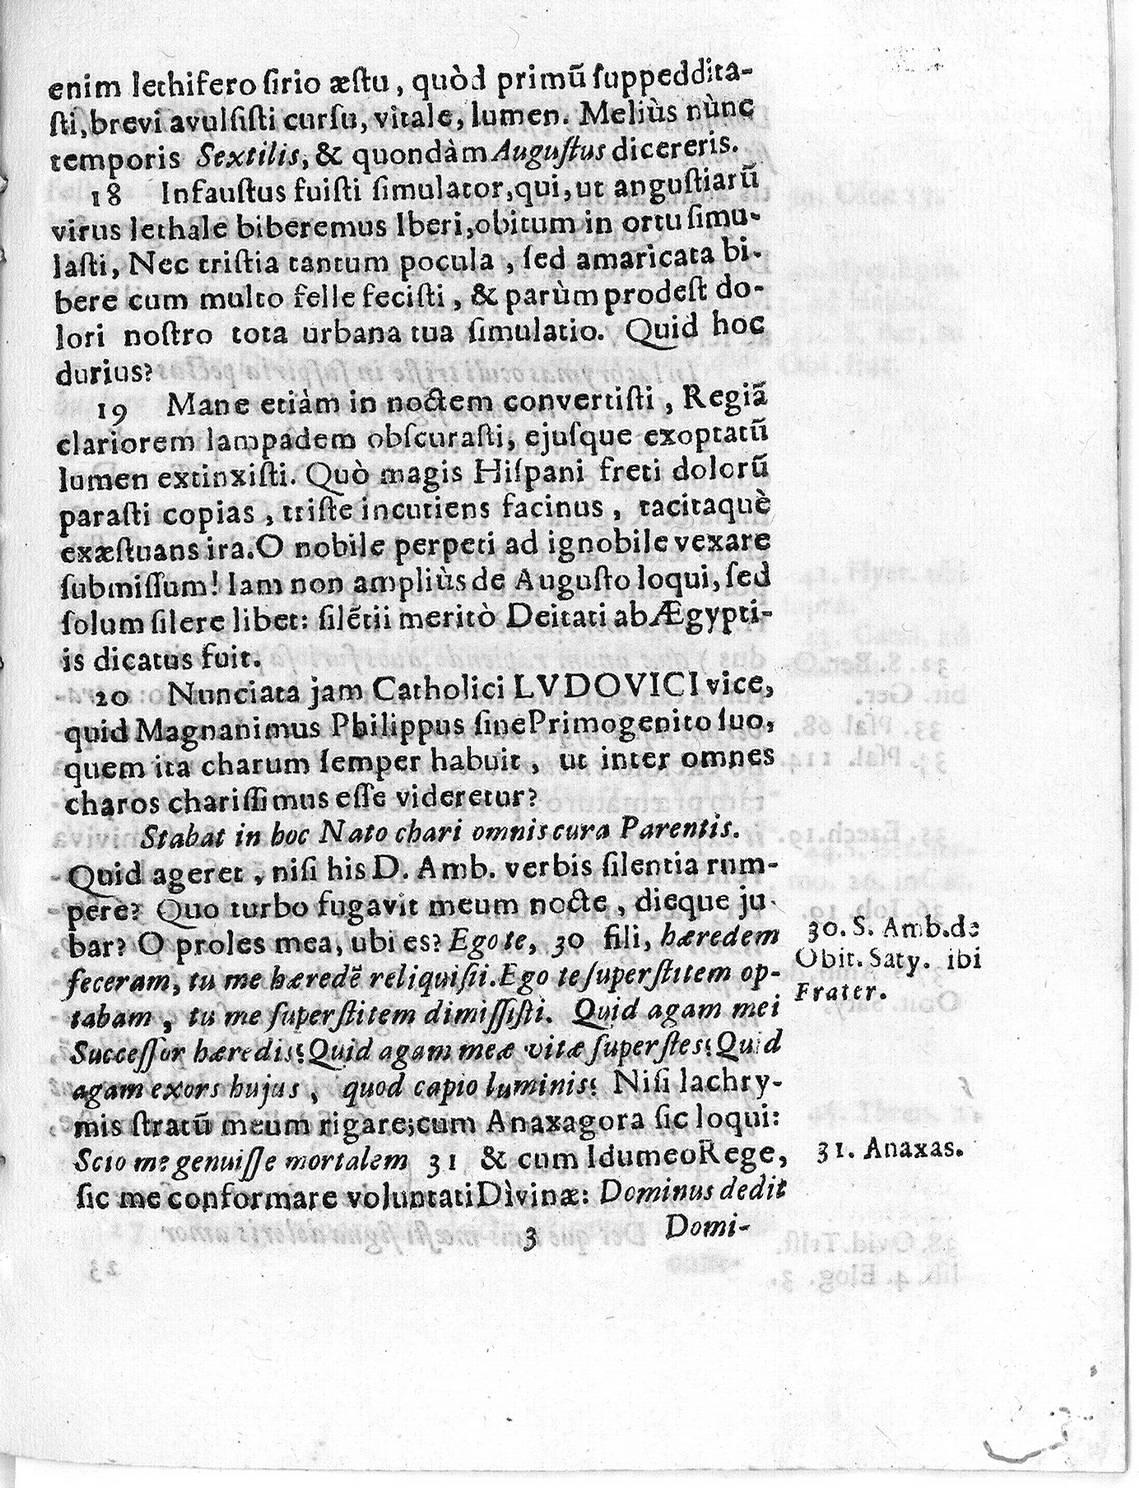 enim lethifero ſirio æſtu, quòd primū ſuppeddita-
ſti, brevi avulſiſti curſu, vitale, lumen. Meliùs nùnc
temporis Sextilis, & quondàm Auguſtus dicereris.
18 Infauſtus fuiſti ſimulator, qui, ut anguſtiarū
virus lethale biberemus Iberi, obitum in ortu ſimu-
laſti, Nec triſtia tantum pocula, ſed amaricata bi-
bere cum multo felle feciſti, & parùm prodeſt do-
lori noſtro tota urbana tua ſimulatio. Quid hoc
durius?
19 Mane etiàm in noctem convertiſti, Regiā
clariorem lampadem obſcuraſti, ejuſque exoptatū
lumen extinxiſti. Quò magis Hiſpani freti dolorū
paraſti copias, triſte incutiens facinus, tacitaquè
exæſtuans ira. O nobile perpeti ad ignobile vexare
ſubmiſſum! Iam non ampliùs de Auguſto loqui, ſed
ſolum ſilere libet: ſilētii meritò Deitati ab Ægypti-
is dicatus fuit.
20 Nunciata jam Catholici LVDOVICI vice,
quid Magnanimus Philippus ſine Primogenito ſuo,
quem ita charum ſemper habuit, ut inter omnes
charos chariſſimus eſſe videretur?
Stabat in hoc Nato chari omnis cura Parentis.
Quid ageret, niſi his D. Amb. verbis ſilentia rum-
pere? Quo turbo fugavit meum nocte, dieque ju-
bar? O proles mea, ubi es? Ego te, 30 fili, hæredem
feceram, tu me hæredē reliquiſti. Ego te ſuperſtitem op-
tabam, tu me ſuperſtitem dimiſſiſti. Quid agam mei
Succeſſor hæredis? Quid agam meæ vitæ ſuperſtes? Quid
agam exors hujus, quod capio luminis? Niſi lachry-
mis ſtratū meum rigare; cum Anaxagora ſic loqui:
Scio me genuiſſe mortalem 31 & cum Idumeo Rege,
ſic me conformare voluntati Dìvinæ: Dominus dedit
3 Domi-
30. S. Amb. de
Obit. Saty. ibi
Frater.
31. Anaxas.